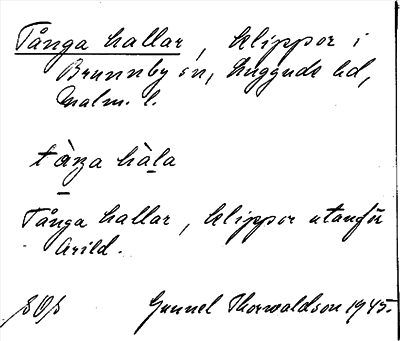 Tånga hallar, klippor i
Brunnby sn, Luggude hd,
Malm. l.
tåŋa hàla
Tånga hallar, klippor utanför
Arild.
Gunnel Thorwaldson 1945.